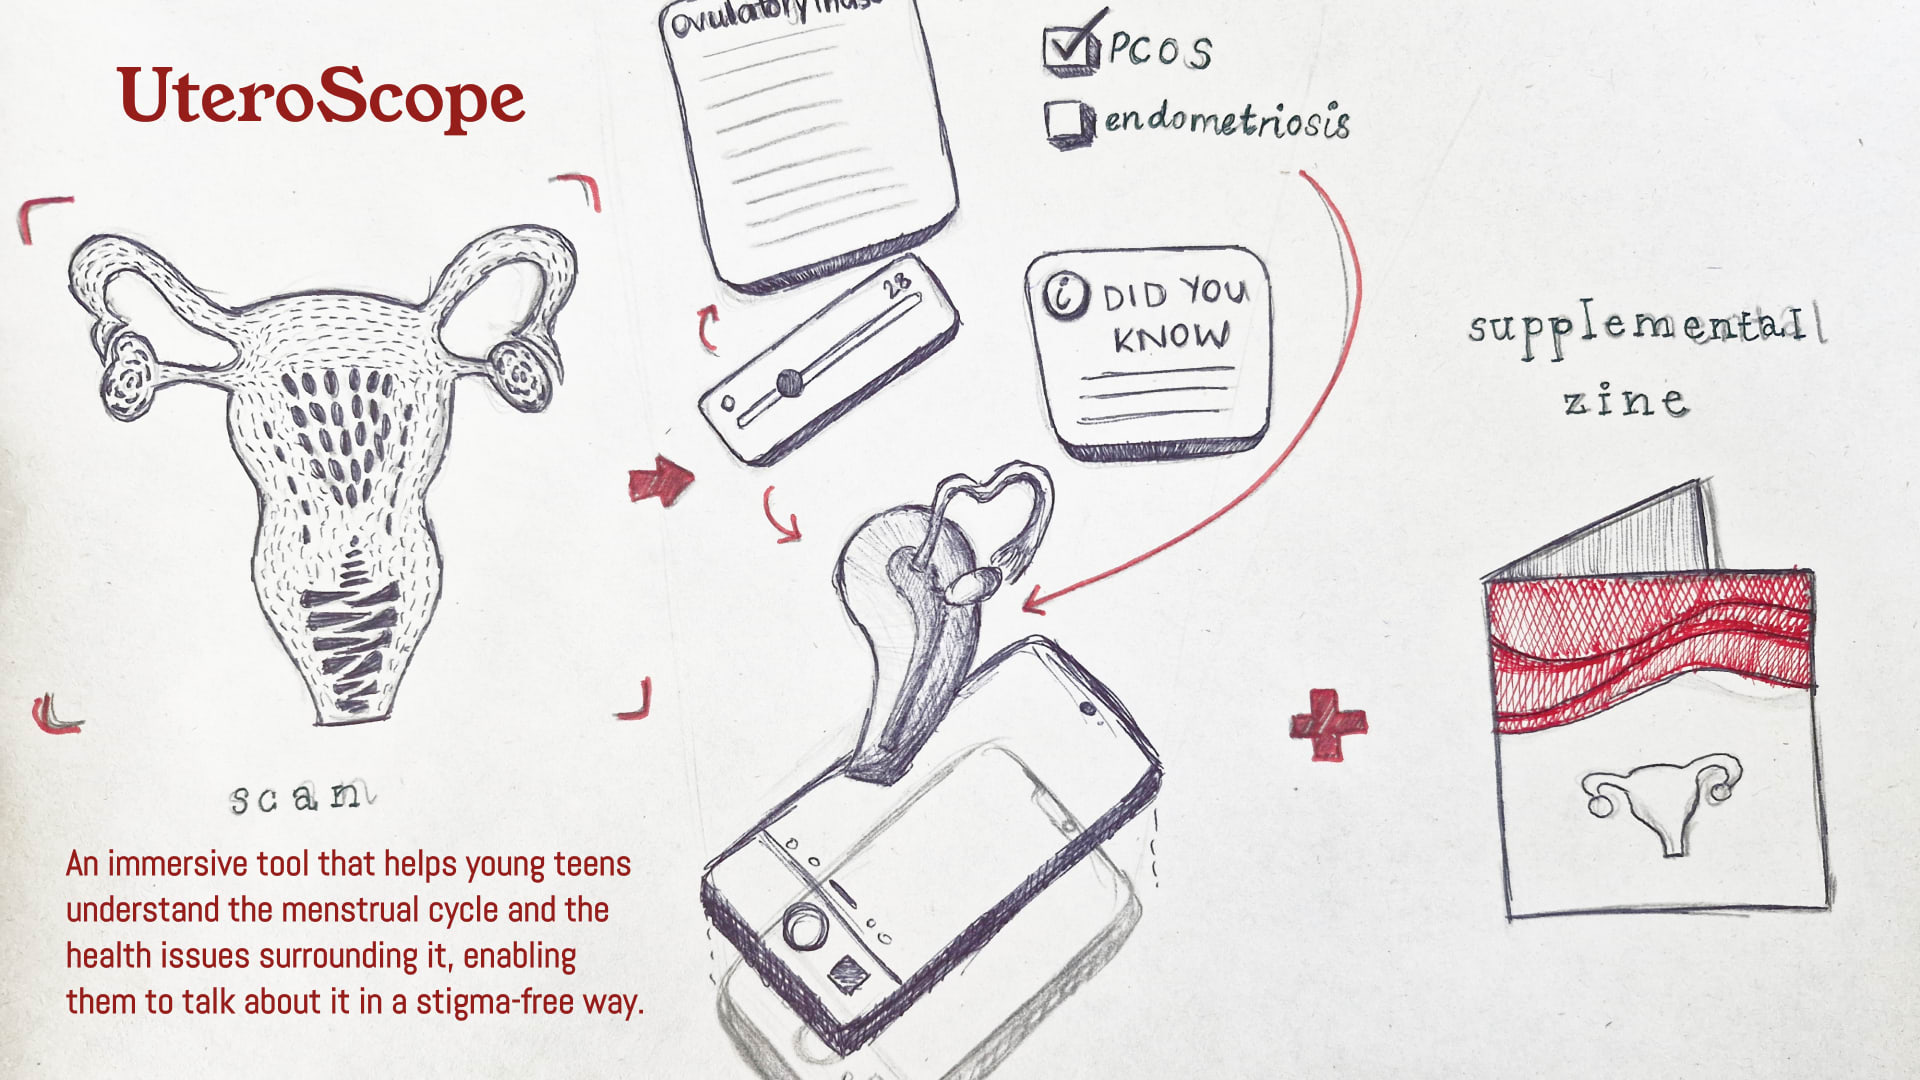 UteroScope
ovulatory Phase
PCOS
endometriosis
28
i DID YOU
KNOW
supplemental
zine
scan
An immersive tool that helps young teens
understand the menstrual cycle and the
health issues surrounding it, enabling
them to talk about it in a stigma-free way.